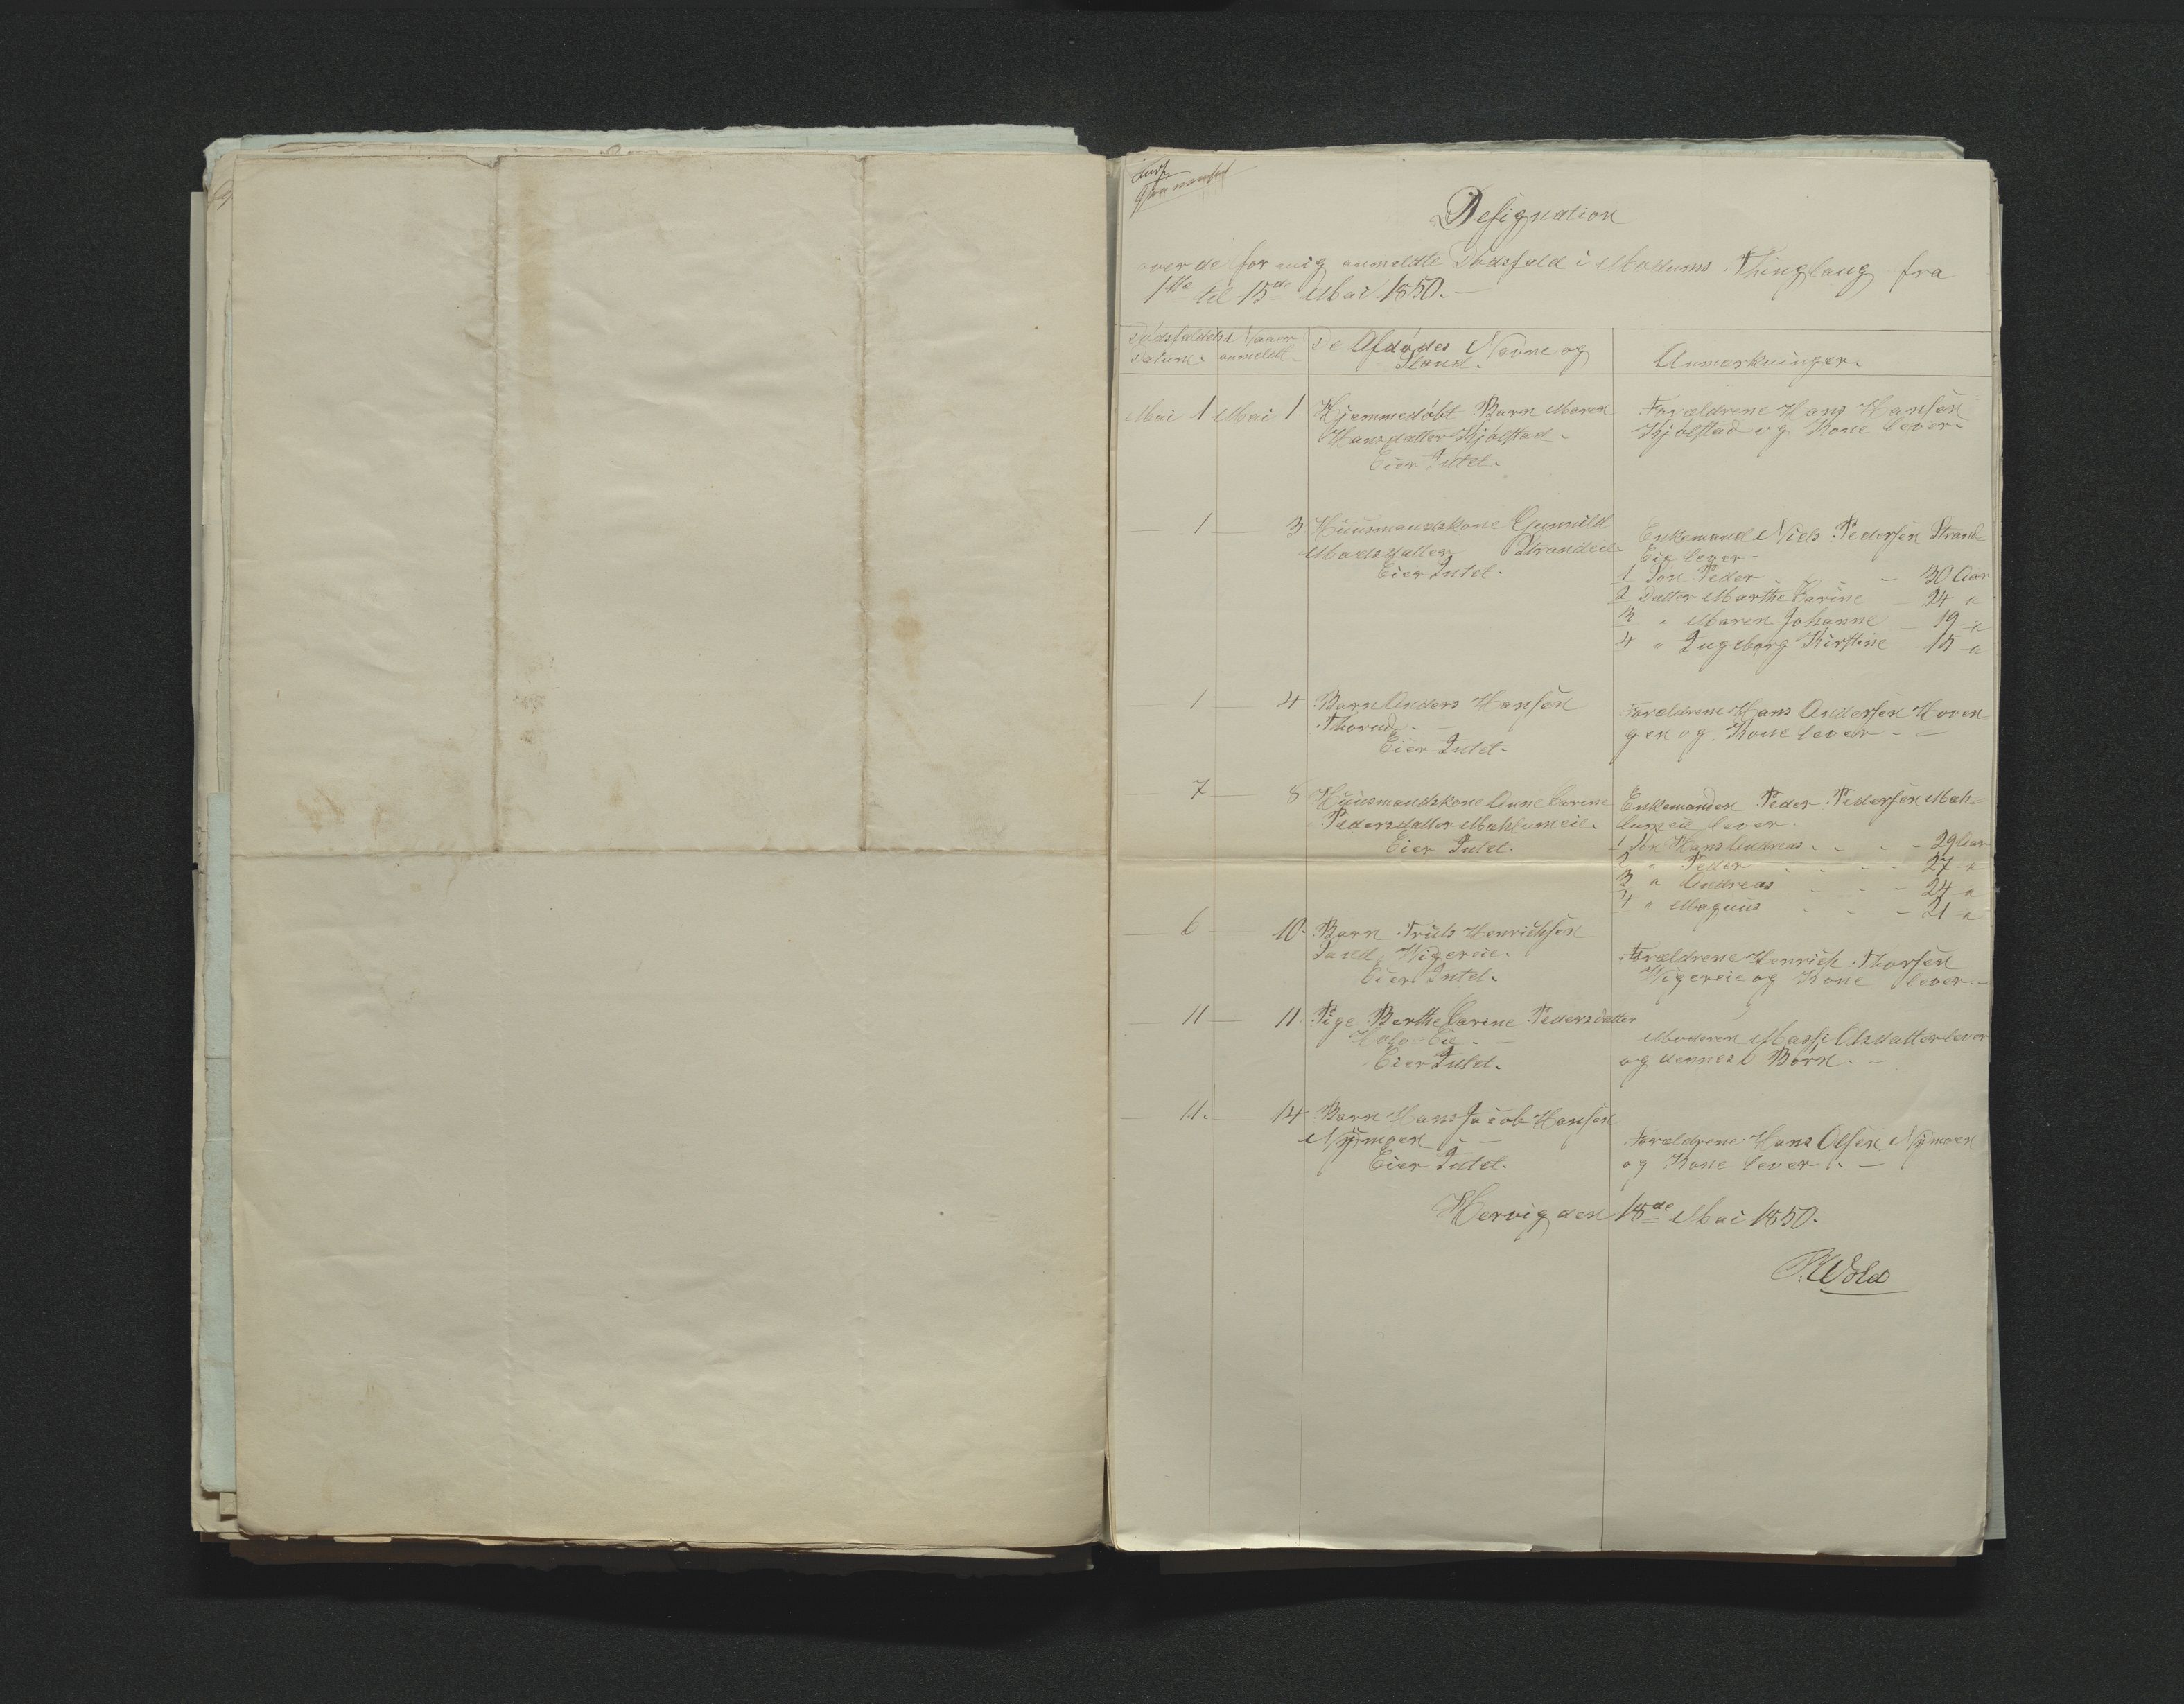 Designation
over de for mig anmeldte Dødsfald i Modums Thinglaug fra
1ste til 15de Mai 1850. —
Dødsfaldets Datum. Naar anmeldt. De Afdødes Navne og Stand. Anmerkninger.
Mai 1 Mai 1. Hjemmedøbt Barn Maren
Hansdatter Kjølstad.
Eier Intet.
Forældrene Hans Hansen
Kjølstad og Kone lever.
— 1 — 3 Huusmandskone Gunnild
Madsdatter Strandeie.
Eier Intet.
Enkemand Niels Pedersen Strand
Eie lever —
1 Søn Peder — 30 Aar
2 Datter Marthe Carine — 24 "
3 " Maren Johanne — 19 "
4 " Ingeborg Kirstine 15 "
— 1 — 4 Barn Anders Hansen
Thorud. —
Eier Intet.
Forældrene Hans Andersen Hoven-
gen og Kone lever. —
— 7 — 8 Huusmandskone Anne Carine
Pedersdatter Mahlumeie.
Eier Intet.
Enkemanden Peder Pedersen Mah=
lumeie lever.
1 Søn Hans Andreas - - - 29 Aar
2 " Peder - - - 27 "
3 " Andreas - - - 24 "
4 " Magnus - - - 21 "
— 6 — 10. Barn Truls Henrichsen
Wigereie.
Eier Intet.
Forældrene Henrich Thorsen
Wigereie og Kone lever. —
— 11 — 11. Pige Berthe Carine Pedersdatter
Eie. —
Eier Intet.
Moderen Olsdatter lever
og dennes 6 Børn. —
— 11. — 14 Barn Hans Jacob Hansen
Nÿmoen —
Eier Intet.
Forældrene Hans Olsen Nÿmoen
og Kone lever. —
Hervig den 15de Mai 1850.
Wold